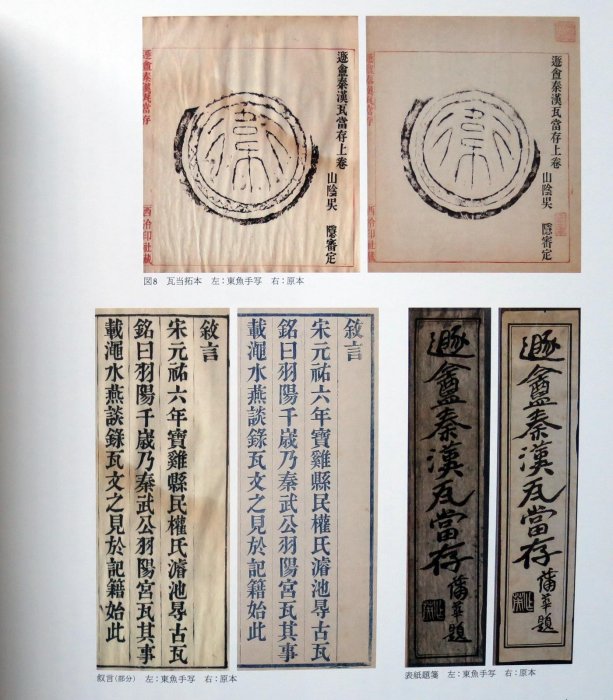 遯盦秦漢瓦當存上卷
山陰吳 隱審定
遯盦秦漢瓦當存
西泠印社藏
遯盦秦漢瓦當存上卷
山陰吳 隱審定
遯盦秦漢瓦當存
西泠印社藏
図8 瓦当拓本 左：東魚手写 右：原本
敘言
宋元祐六年寶雞縣民權氏濬池尋古瓦
銘曰羽陽千歲乃秦武公羽陽宮瓦其事
載澠水燕談錄瓦文之見於記籍始此
敘言
宋元祐六年寶雞縣民權氏濬池尋古瓦
銘曰羽陽千歲乃秦武公羽陽宮瓦其事
載澠水燕談錄瓦文之見於記籍始此
叙言（部分） 左：東魚手写 右：原本
遯盦秦漢瓦當存
蒲華題
遯盦秦漢瓦當存
蒲華題
表紙題箋 左：東魚手写 右：原本